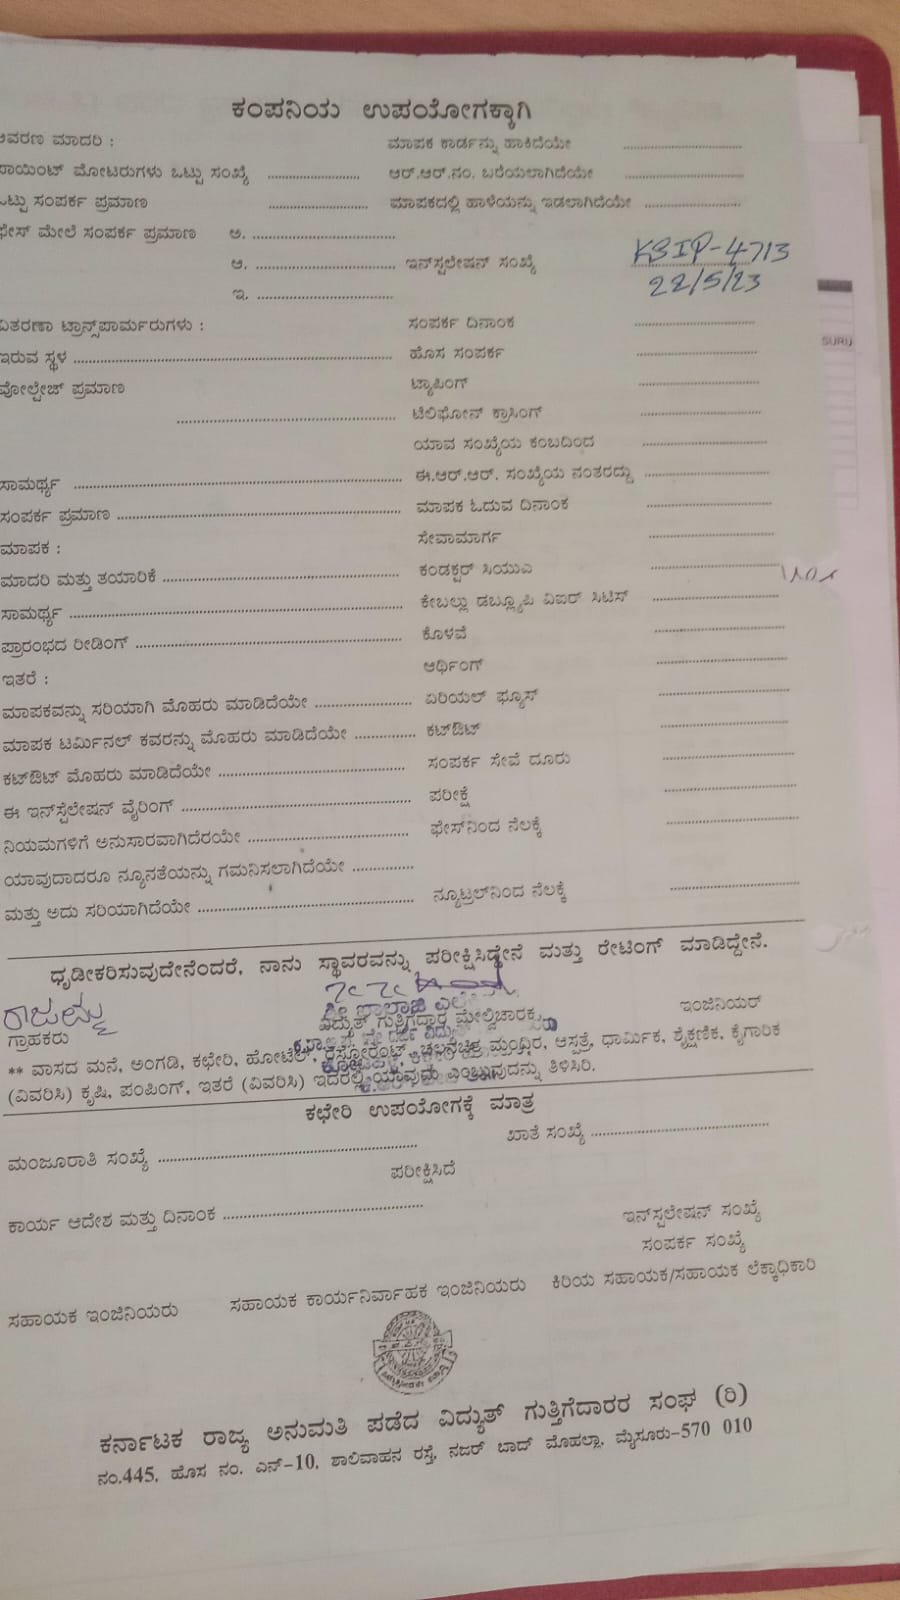 ಕಂಪನಿಯ ಉಪಯೋಗಕ್ಕಾಗಿ
ಆವರಣ ಮಾದರಿ : ಮಾಪಕ ಕಾರ್ಡನ್ನು ಹಾಕಿದೆಯೇ ....................
ಪಾಯಿಂಟ್ ಮೋಟರುಗಳು ಒಟ್ಟು ಸಂಖ್ಯೆ .................... ಆರ್.ಆರ್.ನಂ. ಬರೆಯಲಾಗಿದೆಯೇ ....................
ಒಟ್ಟು ಸಂಪರ್ಕ ಪ್ರಮಾಣ .................... ಮಾಪಕದಲ್ಲಿ ಹಾಳೆಯನ್ನು ಇಡಲಾಗಿದೆಯೇ ....................
ಫೇಸ್ ಮೇಲೆ ಸಂಪರ್ಕ ಪ್ರಮಾಣ ಅ. ....................
ಆ. .................... ಇನ್‌ಸ್ಪಲೇಷನ್ ಸಂಖ್ಯೆ KBIP-4713
22/5/23
ಇ. ....................
SURU
ವಿತರಣಾ ಟ್ರಾನ್ಸ್‌ಪಾರ್ಮರುಗಳು : ಸಂಪರ್ಕ ದಿನಾಂಕ ....................
ಇರುವ ಸ್ಥಳ .................... ಹೊಸ ಸಂಪರ್ಕ ....................
ವೋಲ್ಟೇಜ್ ಪ್ರಮಾಣ ಟ್ಯಾಪಿಂಗ್ ....................
.................... ಟೆಲಿಫೋನ್ ಕ್ರಾಸಿಂಗ್ ....................
ಯಾವ ಸಂಖ್ಯೆಯ ಕಂಬದಿಂದ ....................
ಸಾಮರ್ಥ್ಯ .................... ಈ.ಆರ್.ಆರ್. ಸಂಖ್ಯೆಯ ನಂತರದ್ದು ....................
ಸಂಪರ್ಕ ಪ್ರಮಾಣ .................... ಮಾಪಕ ಓದುವ ದಿನಾಂಕ ....................
ಮಾಪಕ : ಸೇವಾಮಾರ್ಗ ....................
ಮಾದರಿ ಮತ್ತು ತಯಾರಿಕೆ .................... ಕಂಡಕ್ಟರ್ ಸಿಯುಎ ....................
ಸಾಮರ್ಥ್ಯ .................... ಕೇಬಲ್ಲು ಡಬ್ಲ್ಯೂಪಿ ವಿಐರ್ ಸಿಟಿಸ್ ....................
ಪ್ರಾರಂಭದ ರೀಡಿಂಗ್ .................... ಕೊಳವೆ ....................
ಇತರೆ : ಆರ್ಥಿಂಗ್ ....................
ಮಾಪಕವನ್ನು ಸರಿಯಾಗಿ ಮೊಹರು ಮಾಡಿದೆಯೇ .................... ಏರಿಯಲ್ ಫ್ಯೂಸ್ ....................
ಮಾಪಕ ಟರ್ಮಿನಲ್ ಕವರನ್ನು ಮೊಹರು ಮಾಡಿದೆಯೇ .............. ಕಟ್‌ಔಟ್ ....................
ಕಟ್‌ಔಟ್ ಮೊಹರು ಮಾಡಿದೆಯೇ .................... ಸಂಪರ್ಕ ಸೇವೆ ದೂರು ....................
ಈ ಇನ್‌ಸ್ಪೆಲೇಷನ್ ವೈರಿಂಗ್ .................... ಪರೀಕ್ಷೆ ....................
ನಿಯಮಗಳಿಗೆ ಅನುಸಾರವಾಗಿದೆರಯೇ .................... ಫೇಸ್‌ನಿಂದ ನೆಲಕ್ಕೆ ....................
ಯಾವುದಾದರೂ ನ್ಯೂನತೆಯನ್ನು ಗಮನಿಸಲಾಗಿದೆಯೇ ..............
ಮತ್ತು ಅದು ಸರಿಯಾಗಿದೆಯೇ .................... ನ್ಯೂಟ್ರಲ್‌ನಿಂದ ನೆಲಕ್ಕೆ ....................
ಧೃಡೀಕರಿಸುವುದೇನೆಂದರೆ, ನಾನು ಸ್ಥಾವರವನ್ನು ಪರೀಕ್ಷಿಸಿದ್ದೇನೆ ಮತ್ತು ರೇಟಿಂಗ್ ಮಾಡಿದ್ದೇನೆ.
ರಾಜಮ್ಮ
ಗ್ರಾಹಕರು ವಿದ್ಯುತ್ ಗುತ್ತಿಗೆದ್ದಾರ ಮೇಲ್ವಿಚಾರಕ ಇಂಜಿನಿಯರ್
** ವಾಸದ ಮನೆ, ಅಂಗಡಿ, ಕಛೇರಿ, ಹೋಟೆಲ್, ರೆಸ್ಟೋರೆಂಟ್, ಚಲನಚಿತ್ರ ಮಂದಿರ, ಆಸ್ಪತ್ರೆ, ಧಾರ್ಮಿಕ, ಶೈಕ್ಷಣಿಕ, ಕೈಗಾರಿಕ
(ವಿವರಿಸಿ) ಕೃಷಿ, ಪಂಪಿಂಗ್, ಇತರೆ (ವಿವರಿಸಿ) ಇದರಲ್ಲಿ ಯಾವುದು ಎಂಬುವುದನ್ನು ತಿಳಿಸಿರಿ.
ಕಛೇರಿ ಉಪಯೋಗಕ್ಕೆ ಮಾತ್ರ
ಮಂಜೂರಾತಿ ಸಂಖ್ಯೆ .................... ಖಾತೆ ಸಂಖ್ಯೆ ....................
ಪರೀಕ್ಷಿಸಿದೆ
ಕಾರ್ಯ ಆದೇಶ ಮತ್ತು ದಿನಾಂಕ .................... ಇನ್‌ಸ್ಪಲೇಷನ್ ಸಂಖ್ಯೆ
ಸಂಪರ್ಕ ಸಂಖ್ಯೆ
ಸಹಾಯಕ ಇಂಜಿನಿಯರು ಸಹಾಯಕ ಕಾರ್ಯನಿರ್ವಾಹಕ ಇಂಜಿನಿಯರು ಕಿರಿಯ ಸಹಾಯಕ/ಸಹಾಯಕ ಲೆಕ್ಕಾಧಿಕಾರಿ
ಕರ್ನಾಟಕ ರಾಜ್ಯ ಅನುಮತಿ ಪಡೆದ ವಿದ್ಯುತ್ ಗುತ್ತಿಗೆದಾರರ ಸಂಘ (ರಿ)
ನಂ.445, ಹೊಸ ನಂ. ಎನ್-10, ಶಾಲಿವಾಹನ ರಸ್ತೆ, ನಜರ್ ಬಾದ್ ಮೊಹಲ್ಲಾ, ಮೈಸೂರು-570 010